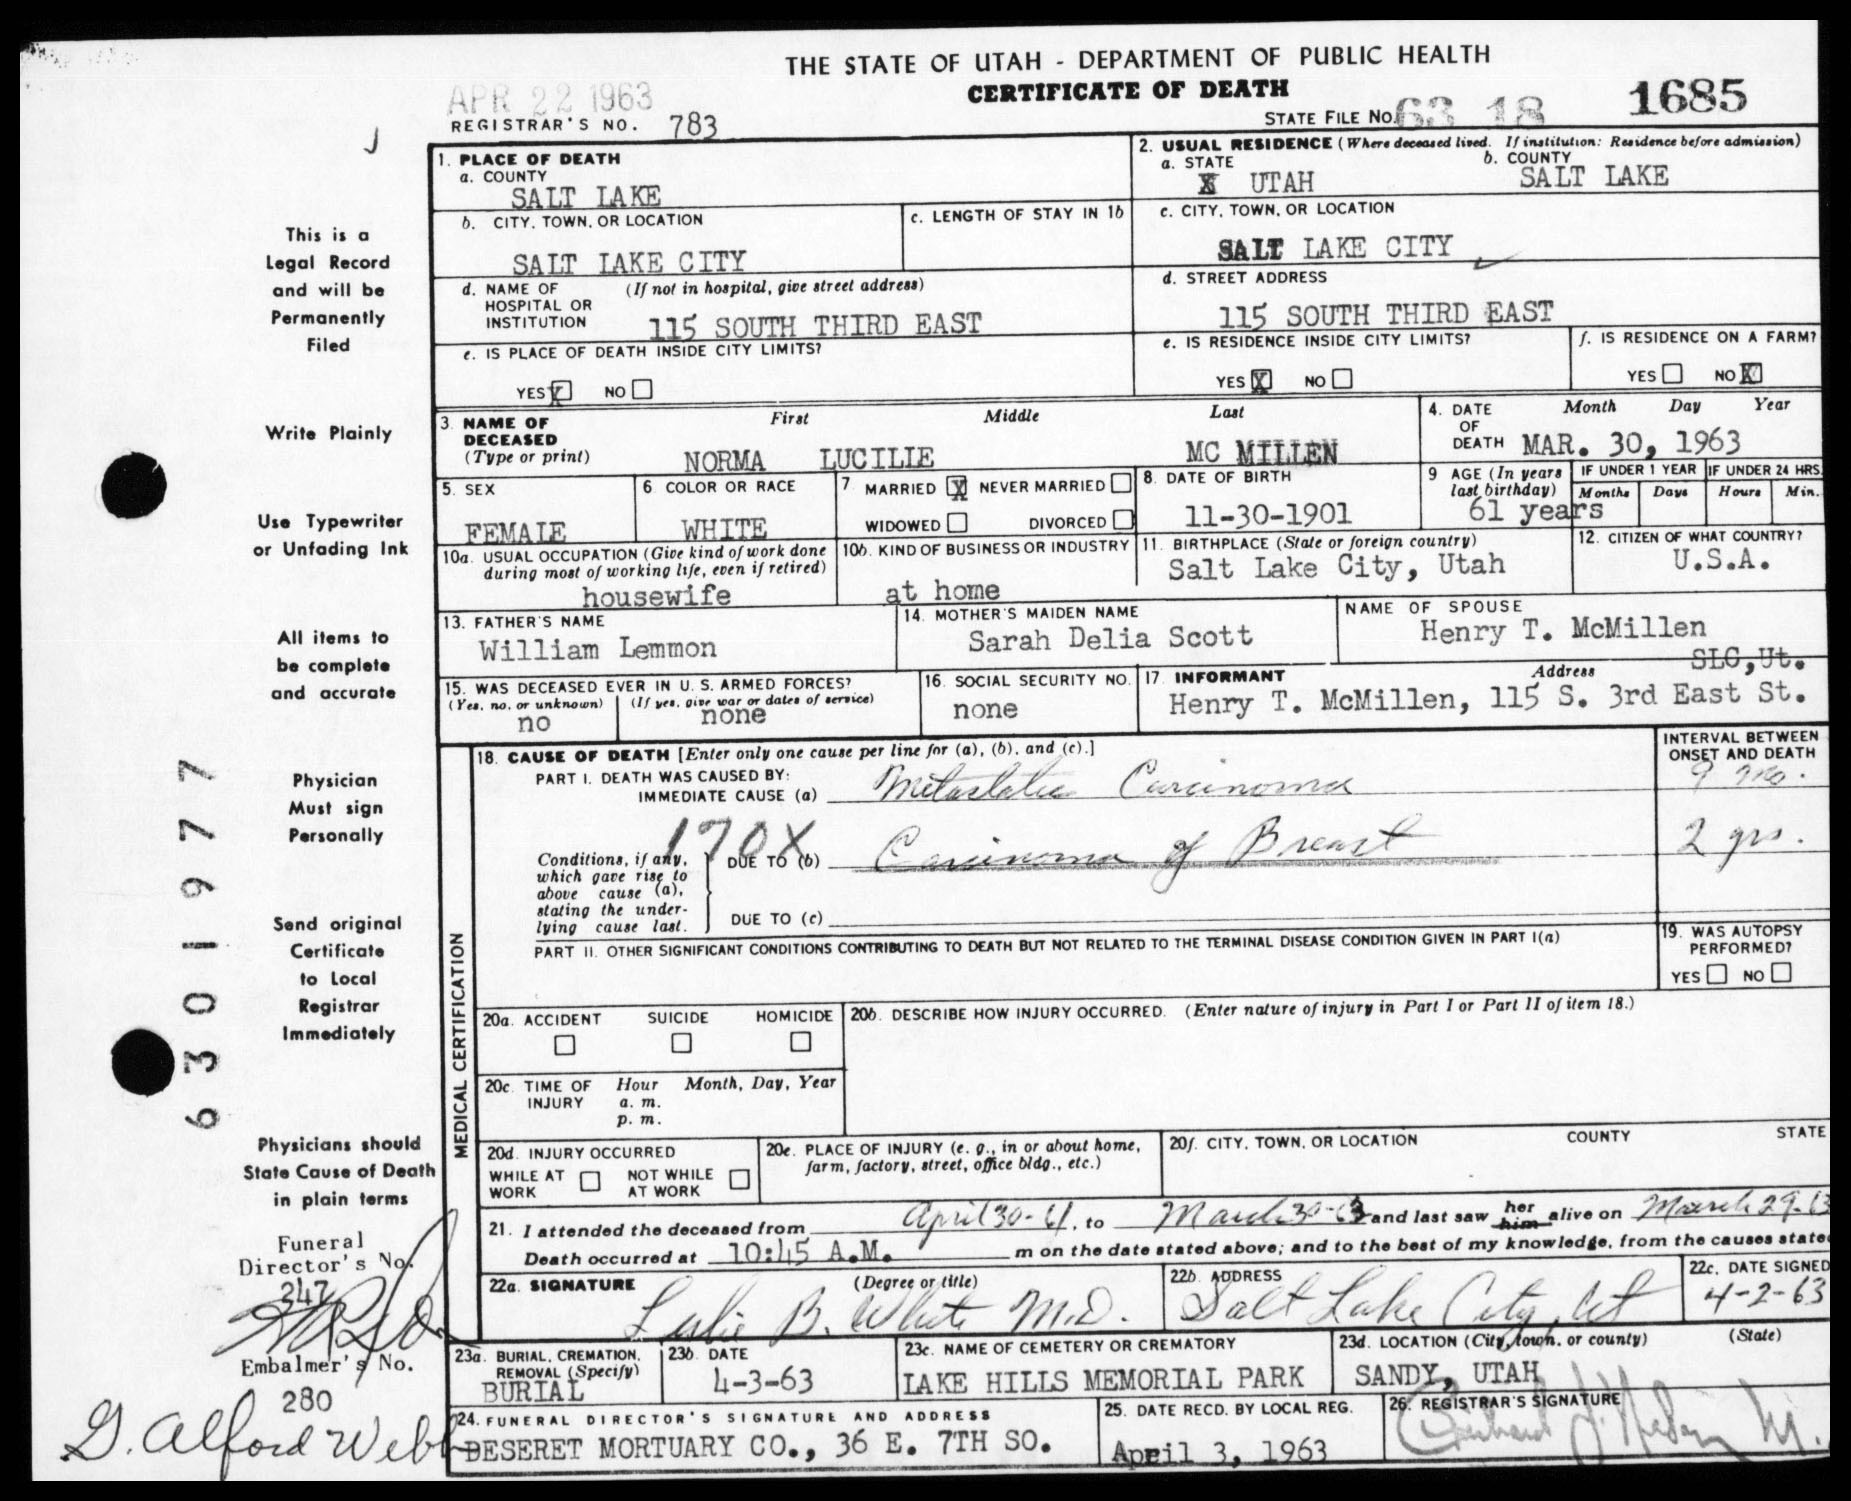 THE STATE OF UTAH - DEPARTMENT OF PUBLIC HEALTH
CERTIFICATE OF DEATH
APR 22 1963
REGISTRAR'S NO. 783
STATE FILE NO. 63 18 1685
This is a
Legal Record
and will be
Permanently
Filed
Write Plainly
Use Typewriter
or Unfading Ink
All items to
be complete
and accurate
Physician
Must sign
Personally
Send original
Certificate
to Local
Registrar
Immediately
Physicians should
State Cause of Death
in plain terms
Funeral
Director's No.
247
Embalmer's No.
280
G. Alford Webb
6301977
1. PLACE OF DEATH
a. COUNTY
SALT LAKE
b. CITY, TOWN, OR LOCATION
SALT LAKE CITY
c. LENGTH OF STAY IN 1b
d. NAME OF HOSPITAL OR INSTITUTION (If not in hospital, give street address)
115 SOUTH THIRD EAST
e. IS PLACE OF DEATH INSIDE CITY LIMITS?
YES X NO
2. USUAL RESIDENCE (Where deceased lived. If institution: Residence before admission)
a. STATE
X UTAH
b. COUNTY
SALT LAKE
c. CITY, TOWN, OR LOCATION
SALT LAKE CITY
d. STREET ADDRESS
115 SOUTH THIRD EAST
e. IS RESIDENCE INSIDE CITY LIMITS?
YES X NO
f. IS RESIDENCE ON A FARM?
YES NO X
3. NAME OF DECEASED (Type or print)
First Middle Last
NORMA LUCILIE MC MILLEN
4. DATE OF DEATH Month Day Year
MAR. 30, 1963
5. SEX
FEMALE
6. COLOR OR RACE
WHITE
7. MARRIED X NEVER MARRIED
WIDOWED DIVORCED
8. DATE OF BIRTH
11-30-1901
9 AGE (In years last birthday)
61 years
IF UNDER 1 YEAR
Months Days
IF UNDER 24 HRS.
Hours Min.
10a. USUAL OCCUPATION (Give kind of work done during most of working life, even if retired)
housewife
10b. KIND OF BUSINESS OR INDUSTRY
at home
11. BIRTHPLACE (State or foreign country)
Salt Lake City, Utah
12. CITIZEN OF WHAT COUNTRY?
U.S.A.
13. FATHER'S NAME
William Lemmon
14. MOTHER'S MAIDEN NAME
Sarah Delia Scott
NAME OF SPOUSE
Henry T. McMillen
15. WAS DECEASED EVER IN U. S. ARMED FORCES?
(Yes, no, or unknown) (If yes, give war or dates of service)
no none
16. SOCIAL SECURITY NO.
none
17. INFORMANT Address
SLC, Ut.
Henry T. McMillen, 115 S. 3rd East St.
MEDICAL CERTIFICATION
18. CAUSE OF DEATH [Enter only one cause per line for (a), (b), and (c).]
PART I. DEATH WAS CAUSED BY:
IMMEDIATE CAUSE (a) Metastatic Carcinoma
INTERVAL BETWEEN ONSET AND DEATH
9 mo.
170X
Conditions, if any, which gave rise to above cause (a), stating the underlying cause last.
DUE TO (b) Carcinoma of Breast
2 yrs.
DUE TO (c)
PART II. OTHER SIGNIFICANT CONDITIONS CONTRIBUTING TO DEATH BUT NOT RELATED TO THE TERMINAL DISEASE CONDITION GIVEN IN PART I(a)
19. WAS AUTOPSY PERFORMED?
YES NO
20a. ACCIDENT SUICIDE HOMICIDE
20b. DESCRIBE HOW INJURY OCCURRED. (Enter nature of injury in Part I or Part II of item 18.)
20c. TIME OF INJURY Hour Month, Day, Year
a. m.
p. m.
20d. INJURY OCCURRED
WHILE AT WORK NOT WHILE AT WORK
20e. PLACE OF INJURY (e. g., in or about home, farm, factory, street, office bldg., etc.)
20f. CITY, TOWN, OR LOCATION COUNTY STATE
21. I attended the deceased from April 30-61, to March 30-63 and last saw her him alive on March 29-63
Death occurred at 10:45 A.M. m on the date stated above; and to the best of my knowledge, from the causes stated
22a. SIGNATURE (Degree or title)
Leslie B. White M.D.
22b. ADDRESS
Salt Lake City, Ut
22c. DATE SIGNED
4-2-63
23a. BURIAL, CREMATION, REMOVAL (Specify)
BURIAL
23b. DATE
4-3-63
23c. NAME OF CEMETERY OR CREMATORY
LAKE HILLS MEMORIAL PARK
23d. LOCATION (City, town, or county) (State)
SANDY, UTAH
24. FUNERAL DIRECTOR'S SIGNATURE AND ADDRESS
DESERET MORTUARY CO., 36 E. 7TH SO.
25. DATE RECD. BY LOCAL REG.
April 3, 1963
26. REGISTRAR'S SIGNATURE